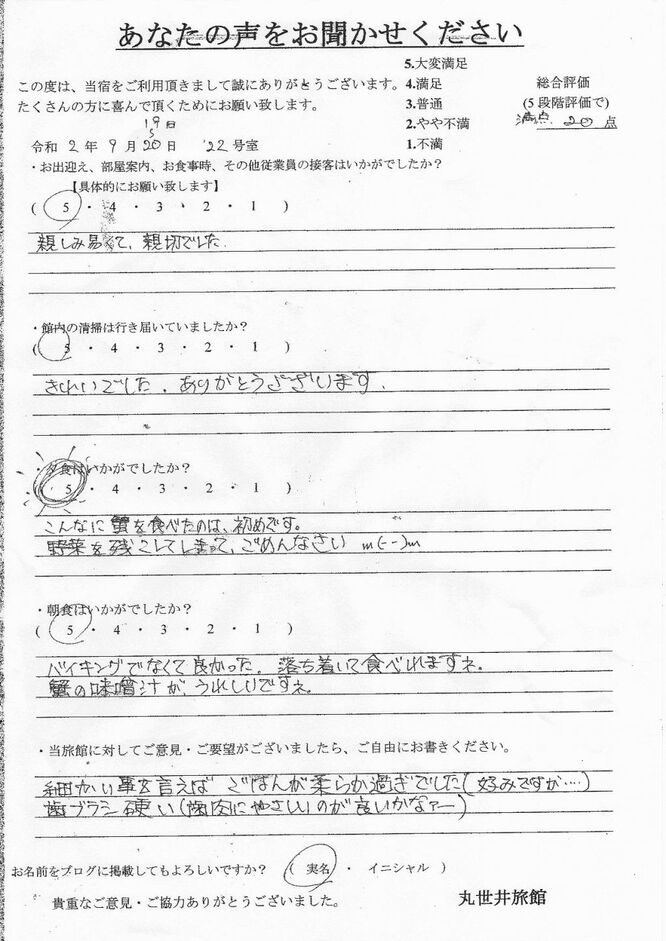 あなたの声をお聞かせください
5.大変満足
この度は、当宿をご利用頂きまして誠にありがとうございます。 4.満足 総合評価
たくさんの方に喜んで頂くためにお願い致します。 3.普通 (5 段階評価で)
19日 2.やや不満 満点 20 点
令和 2 年 9 月 20 日 22 号室 1.不満
・お出迎え、部屋案内、お食事時、その他従業員の接客はいかがでしたか?
【具体的にお願い致します】
( 5 ・ 4 ・ 3 ・ 2 ・ 1 )
親しみ易くて、親切でした.
・館内の清掃は行き届いていましたか?
( 5 ・ 4 ・ 3 ・ 2 ・ 1 )
きれいでした.ありがとうございます.
・夕食はいかがでしたか?
( 5 ・ 4 ・ 3 ・ 2 ・ 1 )
こんなに蟹を食べたのは、初めです。
野菜を残こしてしまって、ごめんなさい m(--)m
・朝食はいかがでしたか?
( 5 ・ 4 ・ 3 ・ 2 ・ 1 )
バイキングでなくて良かった.落ち着いて食べれますネ。
蟹の味噌汁が、うれしいですネ。
・当旅館に対してご意見・ご要望がございましたら、ご自由にお書きください。
細かい事を言えば ごはんが柔らか過ぎでした(好みですが....)
歯ブラシ硬い(歯肉にやさしいのが良いかなァー)
お名前をブログに掲載してもよろしいですか? ( 実名 ・ イニシャル )
貴重なご意見・ご協力ありがとうございました。 丸世井旅館